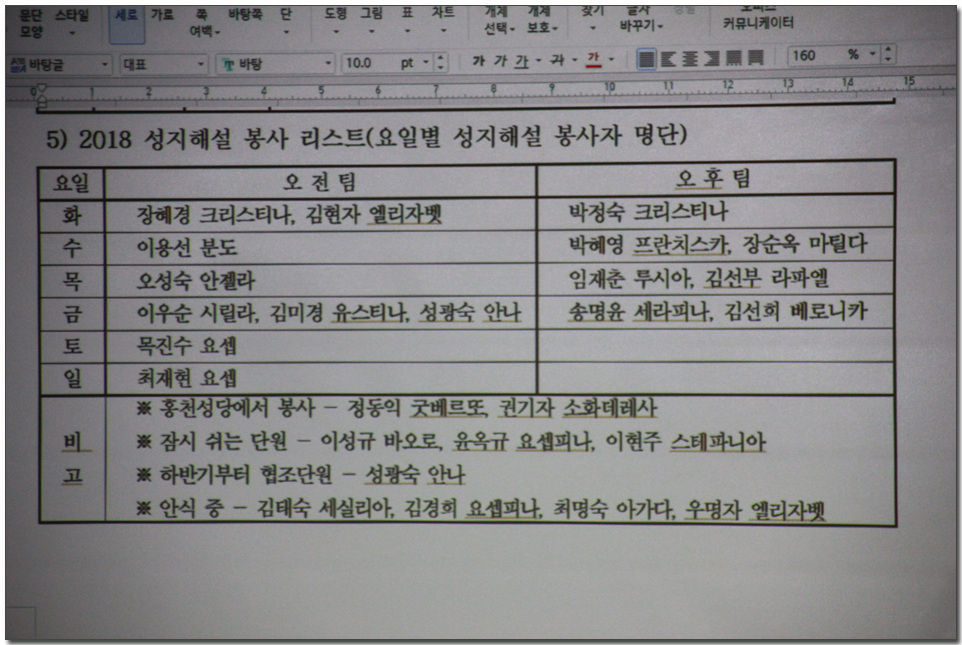 문단 스타일 세로 가로 쪽 바탕쪽 단 도형 그림 표 차트 개체 개체 찾기 글자
모양 여백 선택 보호 바꾸기 커뮤니케이터
바탕글 대표 바탕 10.0 pt 가 가 가 가 가 160 %
0 1 2 3 4 5 6 7 8 9 10 11 12 13 14 15
5) 2018 성지해설 봉사 리스트(요일별 성지해설 봉사자 명단)
요일 오 전 팀 오 후 팀
화 장혜경 크리스티나, 김현자 엘리자벳 박정숙 크리스티나
수 이용선 분도 박혜영 프란치스카, 장순옥 마틸다
목 오성숙 안젤라 임재춘 루시아, 김선부 라파엘
금 이우순 시릴라, 김미경 유스티나, 성광숙 안나 송명윤 세라피나, 김선희 베로니카
토 목진수 요셉
일 최재현 요셉
비고
※ 홍천성당에서 봉사 - 정동익 굿베르또, 권기자 소화데레사
※ 잠시 쉬는 단원 - 이성규 바오로, 윤옥규 요셉피나, 이현주 스테파니아
※ 하반기부터 협조단원 - 성광숙 안나
※ 안식 중 - 김태숙 세실리아, 김경희 요셉피나, 최명숙 아가다, 우명자 엘리자벳